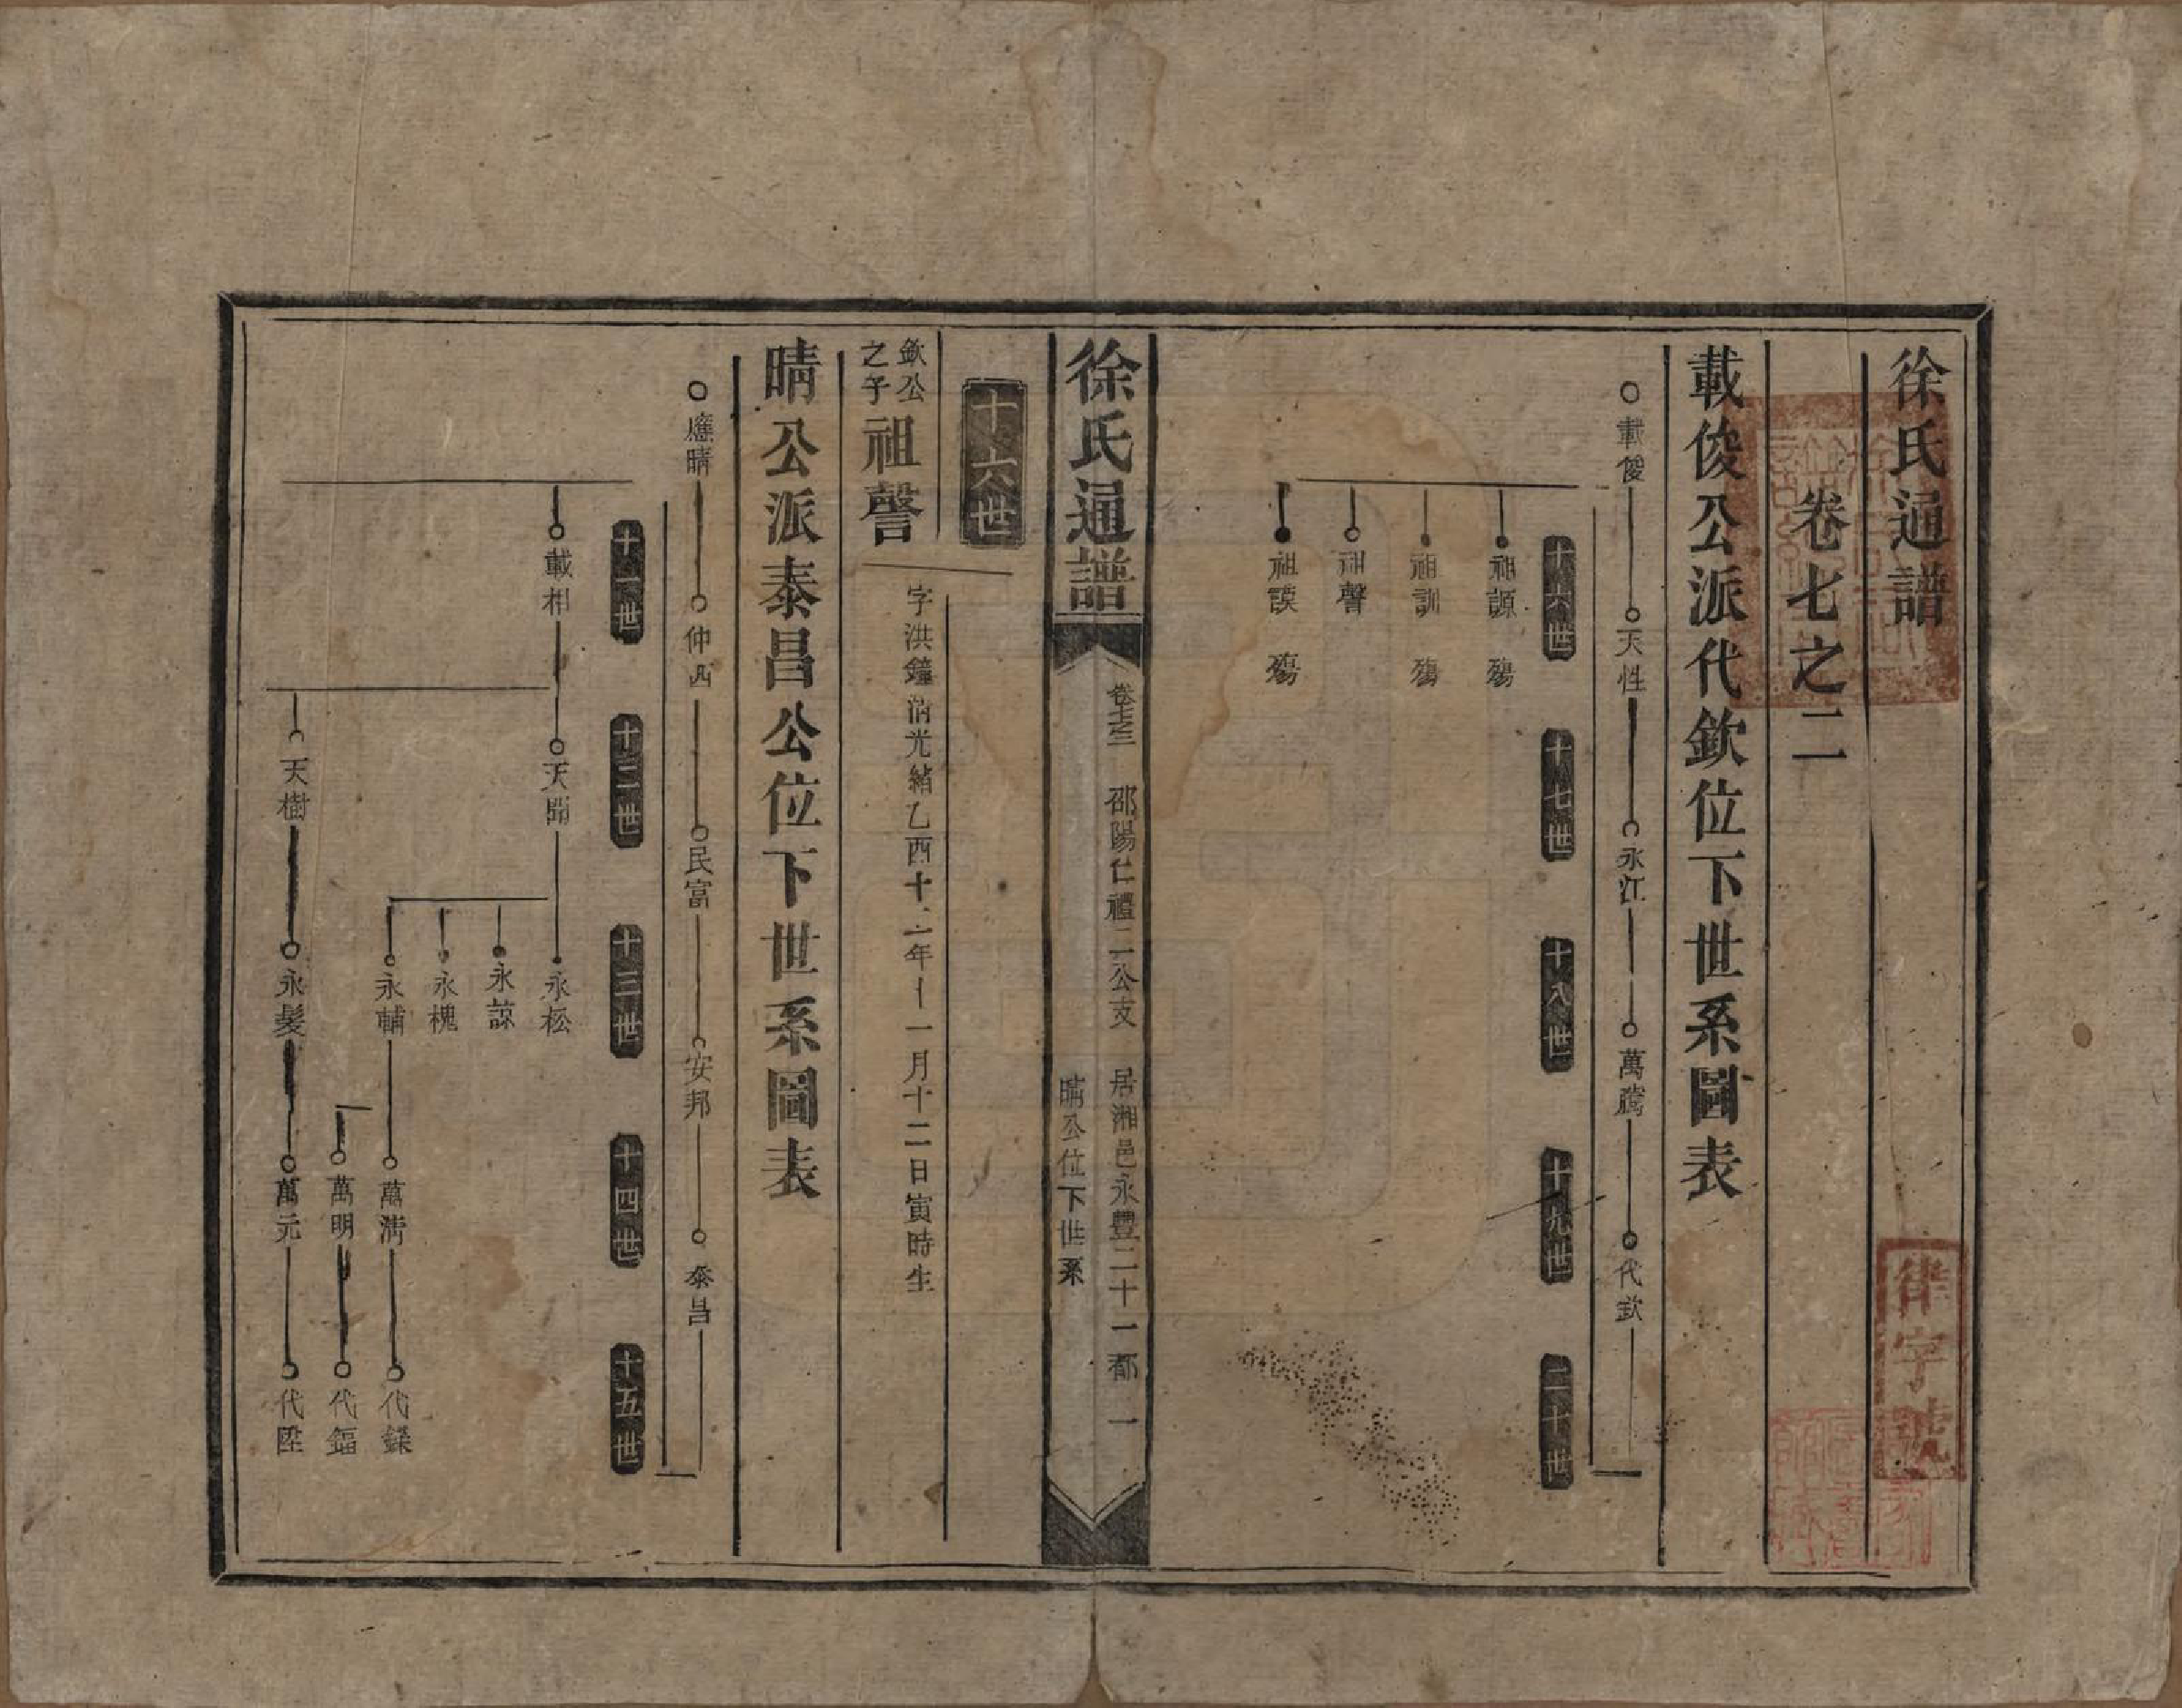 徐氏通譜
卷七之二
載俊公派代欽位下世系圖表
載俊 天性 永江 萬騰 代欽
十六世 十七世 十八世 十九世 二十世
祖源 殤
祖訓 殤
祖聲
祖謨 殤
徐氏通譜
卷七之二 邵陽仁禮二公支 居湘邑永豐二十一都 一
晴公位下世系
十六世
欽公之子 祖聲
字洪鐘清光緒乙酉十一年十一月十二日寅時生
晴公派泰昌公位下世系圖表
應晴 仲西 民富 安邦 泰昌
十一世 十二世 十三世 十四世 十五世
載相 天開 永松
永諒
永槐
永輔 萬清 代鑅
萬明 代鎦
天樹 永髮 萬元 代陞
律字號